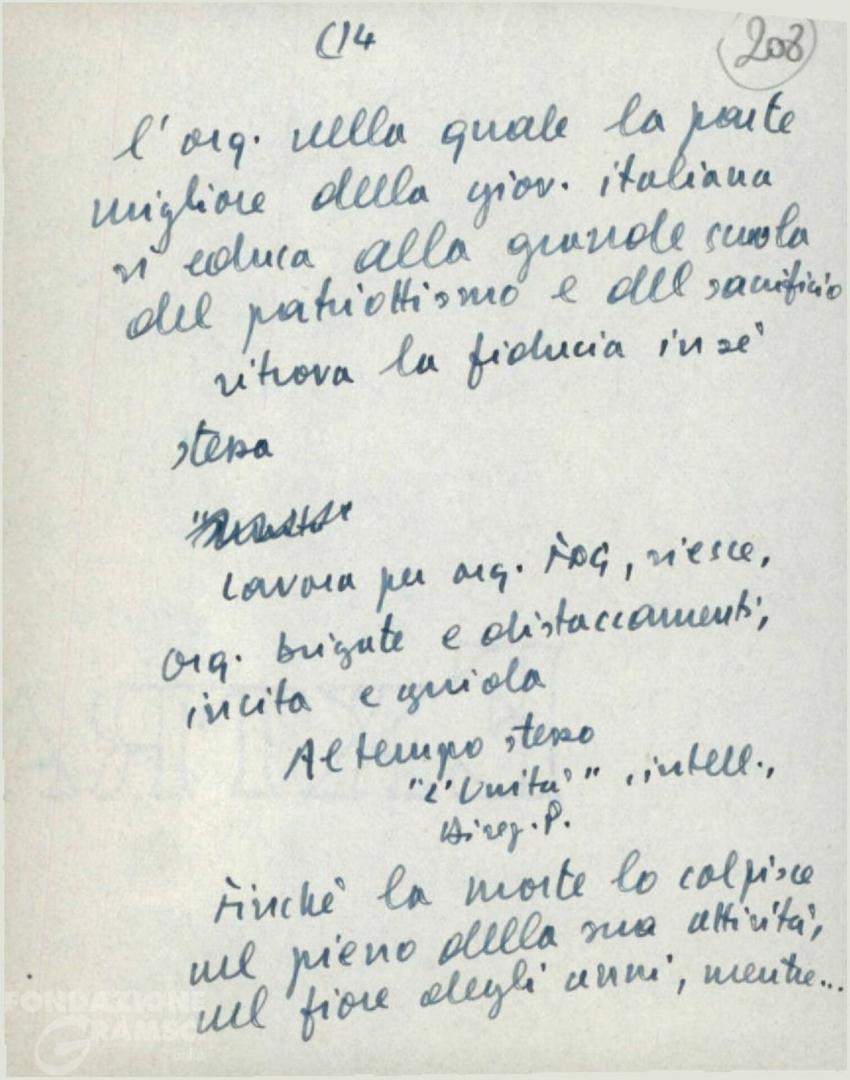 C)4
208
l'org. nella quale la parte
migliore della giov. italiana
si educa alla grande scuola
del patriottismo e del sacrificio
ritrova la fiducia in sè
stessa
Lavora per org. FdG, riesce,
org. brigate e distaccamenti,
incita e guida
Al tempo stesso
"L'Unità", intell.,
Direz. P.
Finchè la morte lo colpisce
nel pieno della sua attività,
nel fiore degli anni, mentre...
FONDAZIONE
GRAMSCI